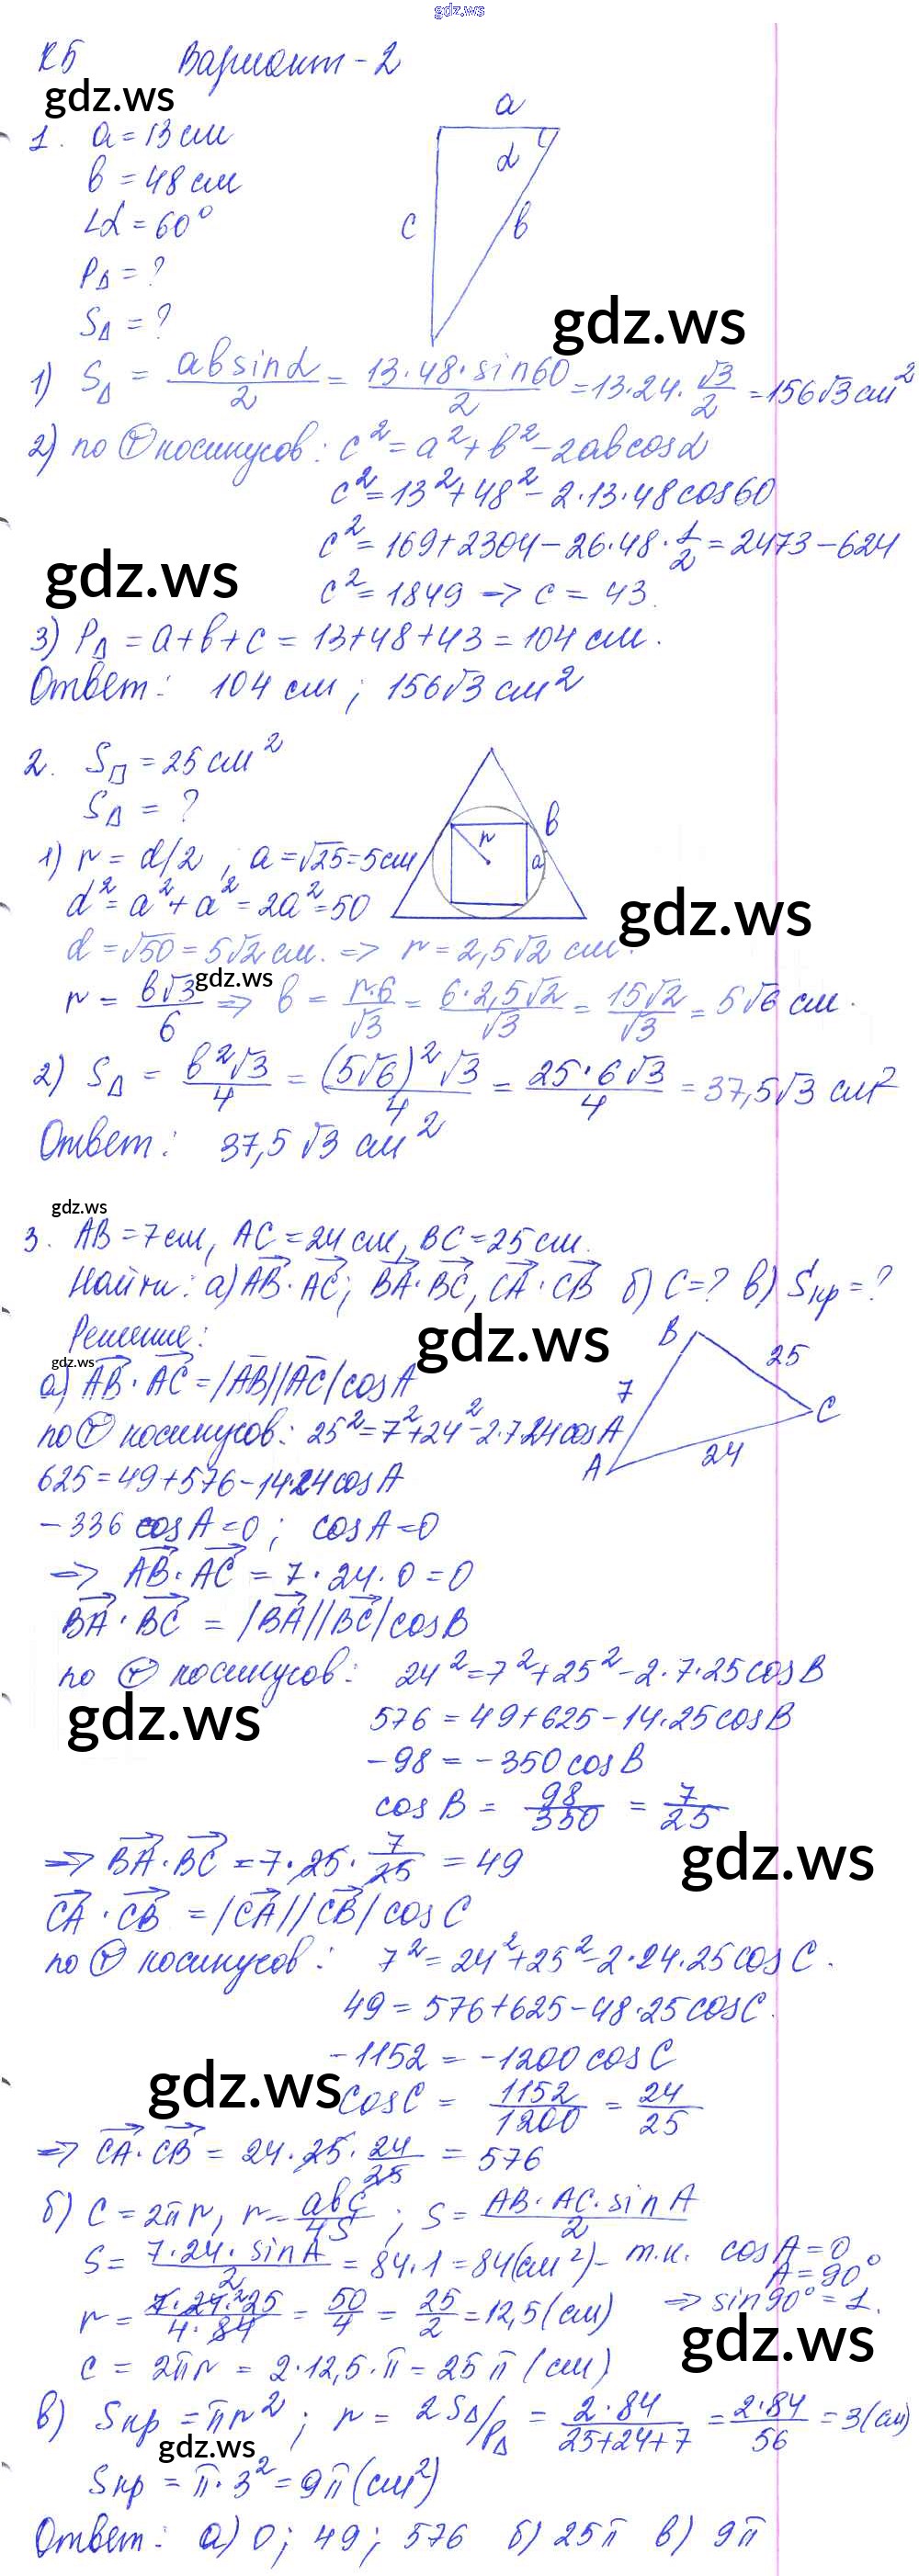 gdz.ws
К5 Вариант-2
gdz.ws
1. a = 13 см
b = 48 см
∠α = 60°
P△ = ?
S△ = ?
a
α
c
b
gdz.ws
1) S△ = ab sinα / 2 = 13·48·sin60 / 2 = 13·24·√3/2 = 156√3 см²
2) по Ⓣ косинусов: c² = a² + b² - 2ab cosα
c² = 13² + 48² - 2·13·48 cos60
c² = 169 + 2304 - 26·48·1/2 = 2473 - 624
gdz.ws
c² = 1849 => c = 43.
3) P△ = a + b + c = 13 + 48 + 43 = 104 см.
Ответ: 104 см; 156√3 см²
2. S□ = 25 см²
S△ = ?
r
b
a
1) r = d/2, a = √25 = 5 см
d² = a² + a² = 2a² = 50
gdz.ws
d = √50 = 5√2 см. => r = 2,5√2 см.
gdz.ws
r = b√3/6 => b = r·6/√3 = 6·2,5√2/√3 = 15√2/√3 = 5√6 см.
2) S△ = b²√3/4 = (5√6)²√3/4 = 25·6√3/4 = 37,5√3 см²
Ответ: 37,5√3 см²
gdz.ws
3. AB = 7 см, AC = 24 см, BC = 25 см.
Найти: а) AB·AC; BA·BC, CA·CB б) C = ? в) Sкр = ?
Решение:
gdz.ws
B
25
7
C
24
A
gdz.ws
а) AB·AC = |AB||AC| cos A
по Ⓣ косинусов: 25² = 7² + 24² - 2·7·24 cos A
625 = 49 + 576 - 14·24 cos A
- 336 cos A = 0; cos A = 0
=> AB·AC = 7·24·0 = 0
BA·BC = |BA||BC| cos B
по Ⓣ косинусов: 24² = 7² + 25² - 2·7·25 cos B
gdz.ws
576 = 49 + 625 - 14·25 cos B
- 98 = - 350 cos B
cos B = 98/350 = 7/25
gdz.ws
=> BA·BC = 7·25·7/25 = 49
CA·CB = |CA||CB| cos C
по Ⓣ косинусов: 7² = 24² + 25² - 2·24·25 cos C.
49 = 576 + 625 - 48·25 cos C.
- 1152 = - 1200 cos C
gdz.ws
cos C = 1152/1200 = 24/25
=> CA·CB = 24·25·24/25 = 576
б) C = 2πr, r = abc/4S; S = AB·AC·sin A / 2
S = 7·24·sin A / 2 = 84·1 = 84 (см²) - т.к. cos A = 0
A = 90°
=> sin 90° = 1.
r = 7·24·25 / 4·84 = 50/4 = 25/2 = 12,5 (см)
gdz.ws
C = 2πr = 2·12,5·π = 25π (см)
в) Sкр = πr²; r = 2S△/P△ = 2·84 / 25+24+7 = 2·84/56 = 3 (см)
gdz.ws
Sкр = π·3² = 9π (см²)
Ответ: а) 0; 49; 576 б) 25π в) 9π